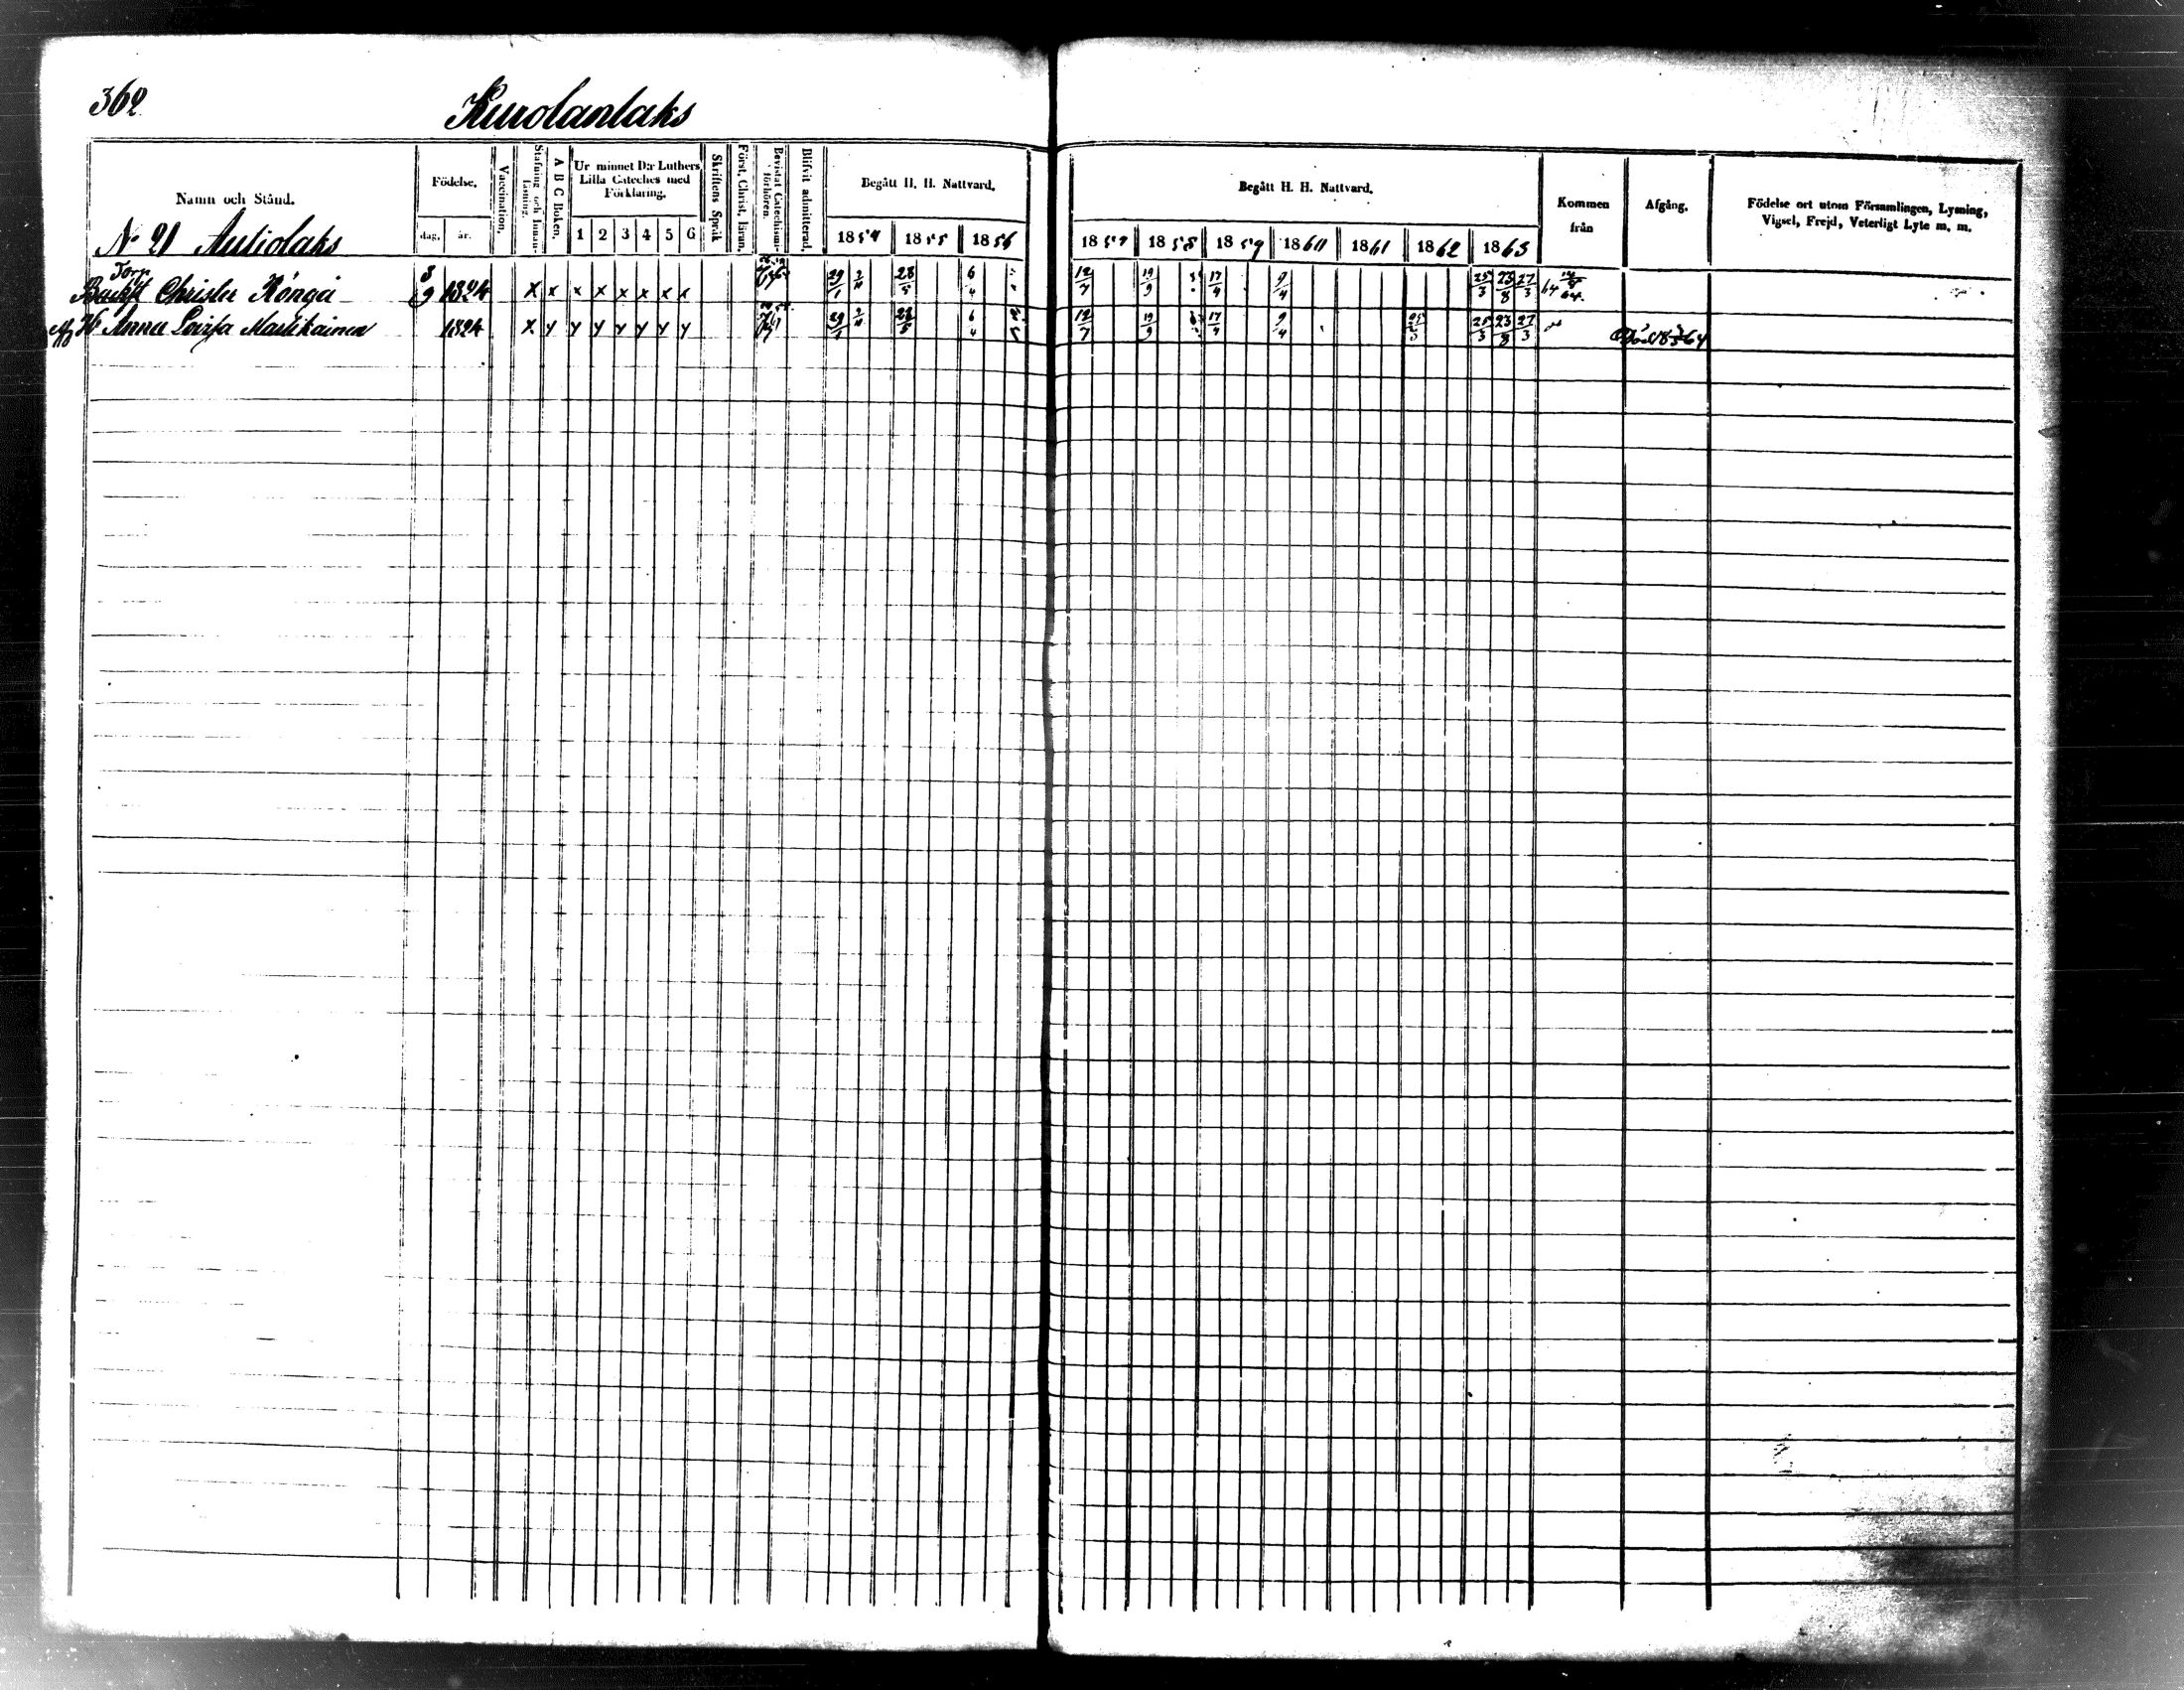 362
Kurolanlaks
Namn och Stånd.
Födelse.
dag. år.
Vaccination.
Stafning och Innanläsning.
A B C Boken.
Ur minnet D:r Luthers Lilla Cateches med Förklaring.
1 2 3 4 5 6
Skriftens Språk
Först. Christ. krun.
Bevistat Catechismi-förhören.
Blifvit admitterad.
Begått H. H. Nattvard.
1854 1855 1856
Begått H. H. Nattvard.
1857 1858 1859 1860 1861 1862 1863
Kommen från
Afgång.
Födelse ort utom Församlingen, Lysning, Vigsel, Frejd, Veterligt Lyte m. m.
No 21 Autiolaks
Torp.
Christer Köngä 3/9 1824 x x x x x x x x 29/1 2/11 28/5 6/4 12/7 19/9 17/4 9/4 25/3 23/8 27/3
H. Anna Loisa Martikainen 1824 x y y y y y y y 29/1 2/11 28/5 6/4 12/7 19/9 17/4 9/4 25/3 25/3 23/8 27/3